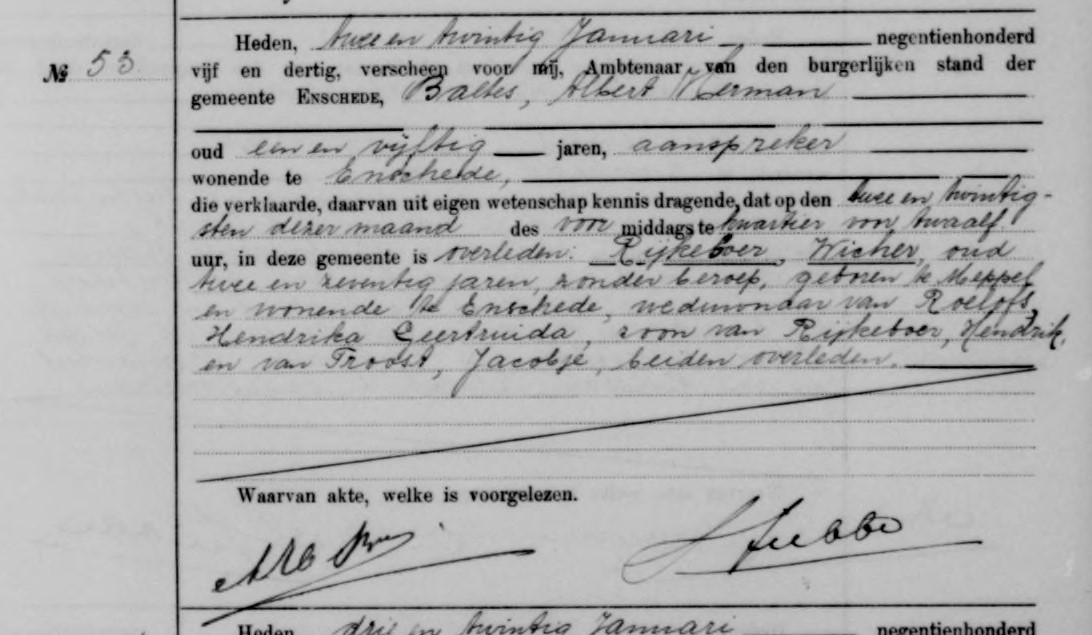 Heden, twee en twintig Januari negentienhonderd
№ 53 vijf en dertig, verscheen voor mij, Ambtenaar van den burgerlijken stand der
gemeente ENSCHEDE, Baltes, Albert Herman
oud een en vijftig jaren, aanspreker
wonende te Enschede,
die verklaarde, daarvan uit eigen wetenschap kennis dragende, dat op den twee en twintig-
sten dezer maand des voor middags te kwartier voor twaalf
uur, in deze gemeente is overleden: Rijkeboer, Wicher, oud
twee en zeventig jaren, zonder beroep, geboren te Meppel
en wonende te Enschede, weduwnaar van Roelofs,
Hendrika Geertruida, zoon van Rijkeboer, Hendrik,
en van Troost, Jacobje, beiden overleden.
Waarvan akte, welke is voorgelezen.
Heden, drie en twintig Januari negentienhonderd